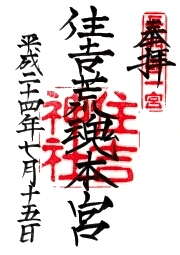 奉拝
住吉荒魂本宮
住吉
神社
平成二十四年七月十五日